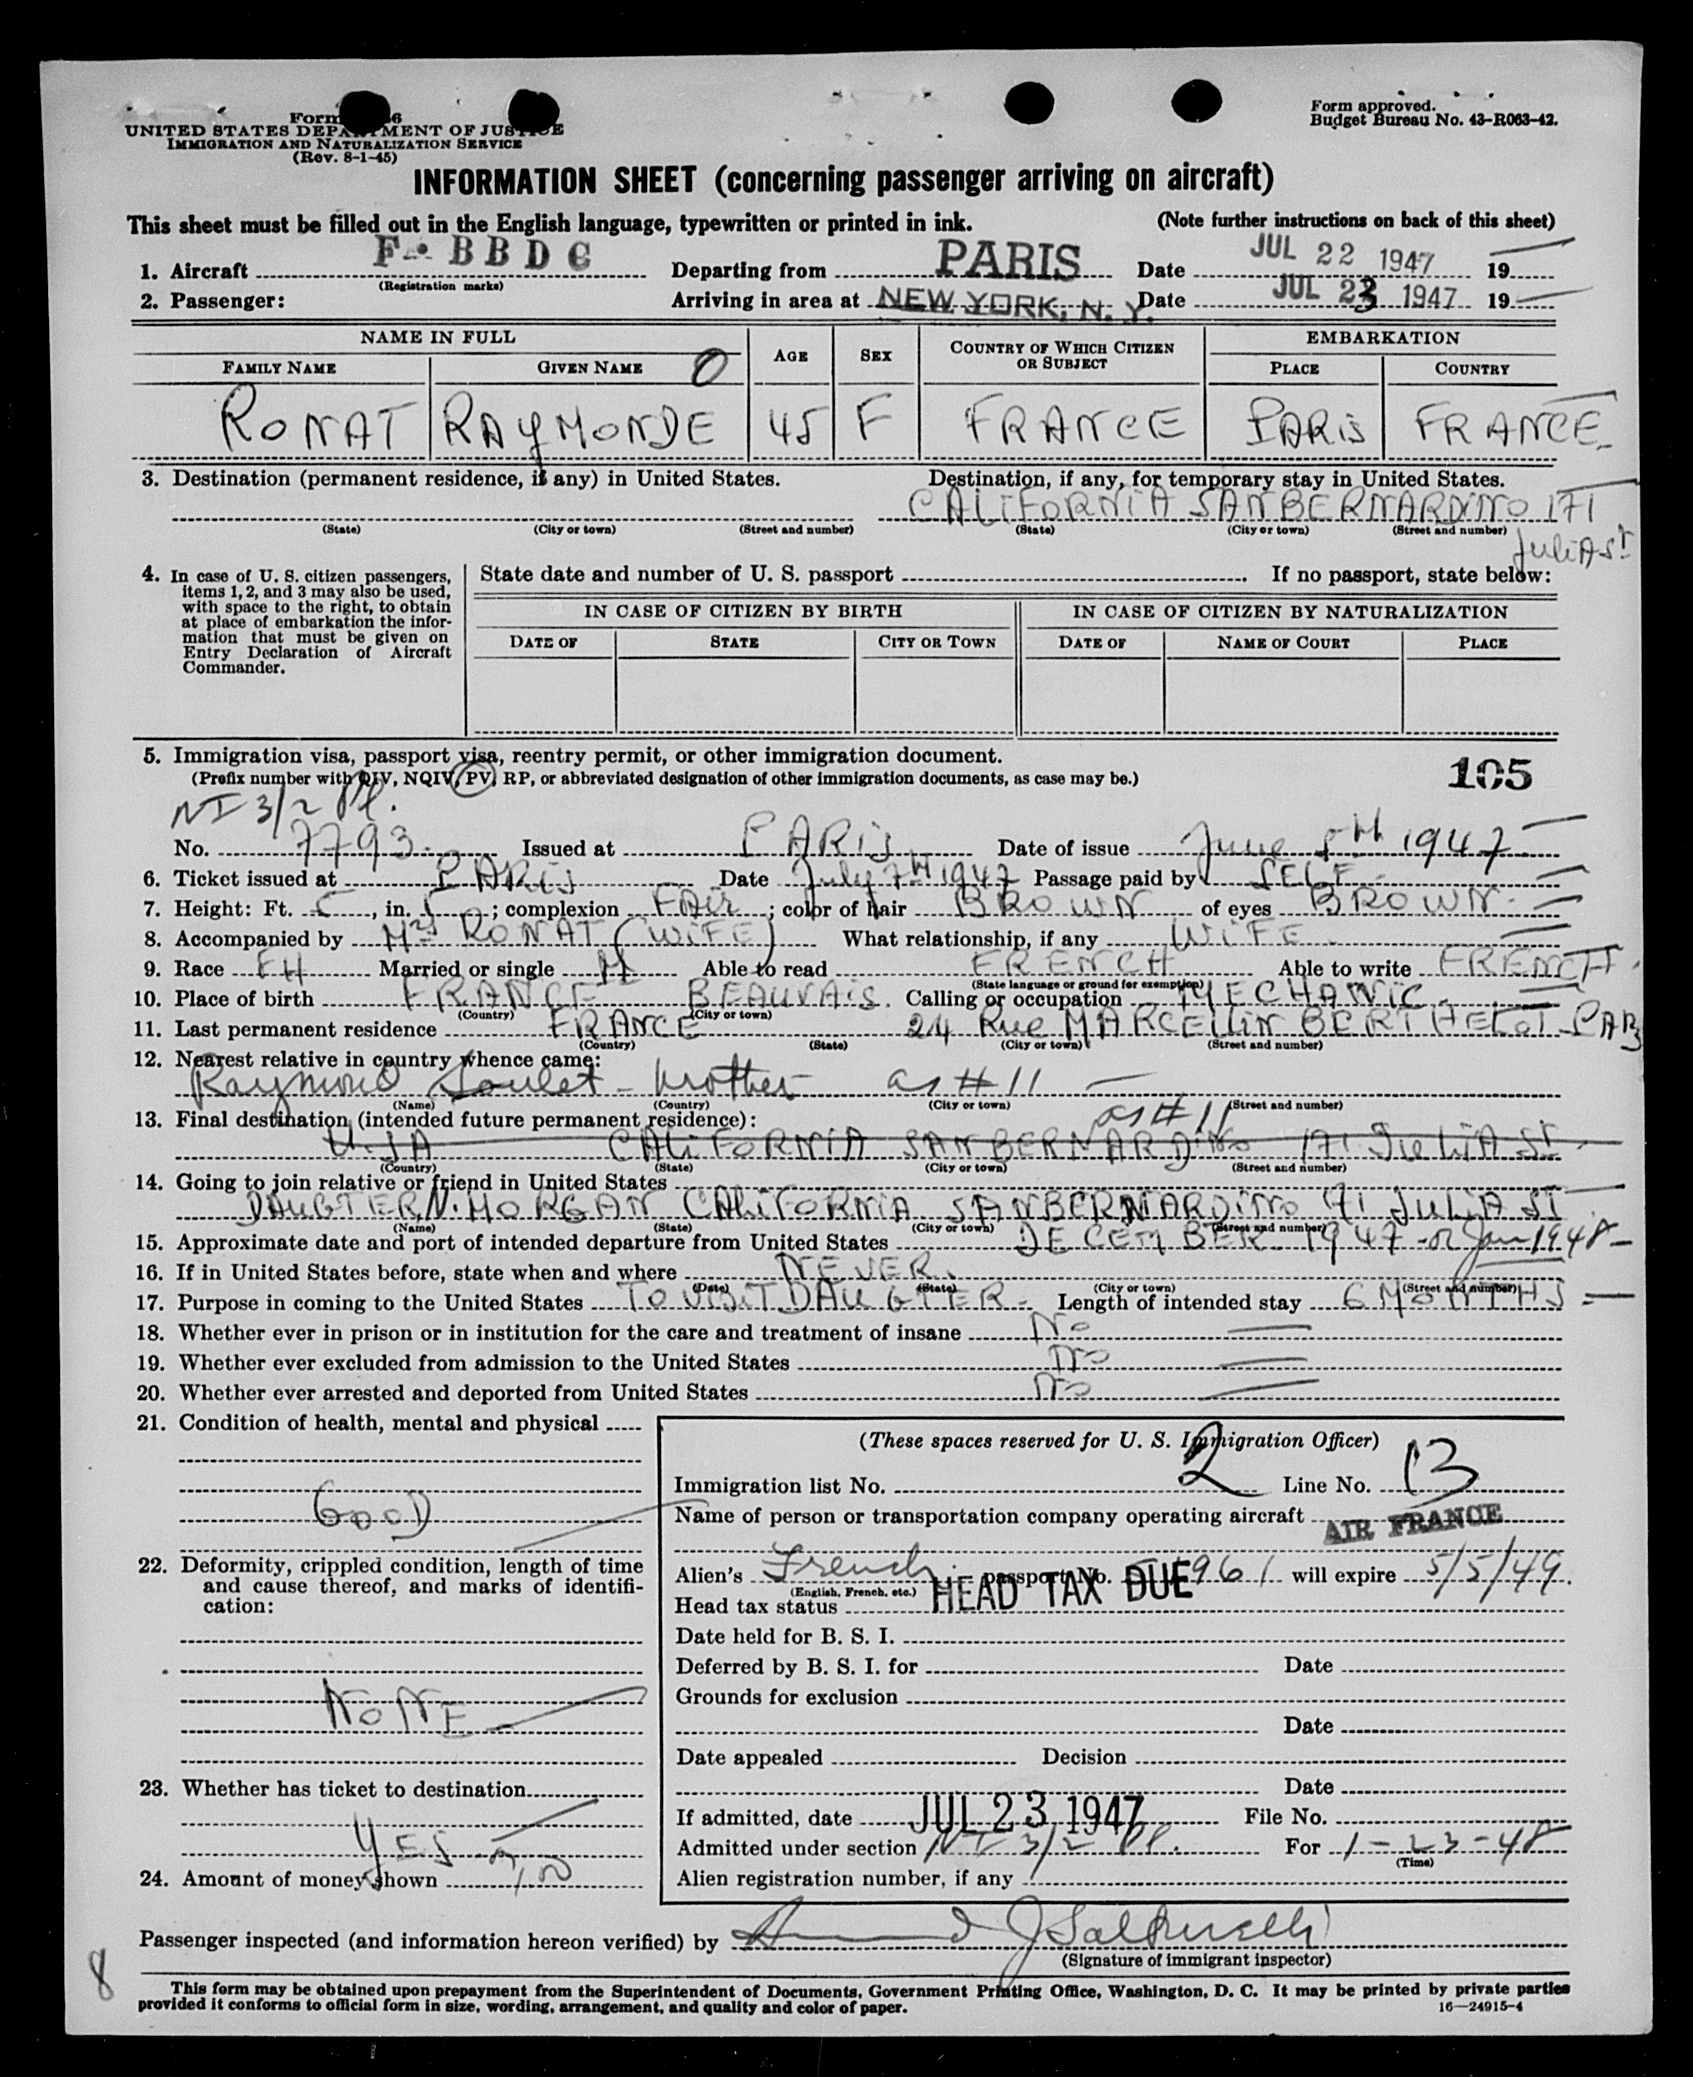 Form 6
UNITED STATES DEPARTMENT OF JUSTICE
IMMIGRATION AND NATURALIZATION SERVICE
(Rev. 8-1-45)
Form approved.
Budget Bureau No. 43-R063-42.
INFORMATION SHEET (concerning passenger arriving on aircraft)
This sheet must be filled out in the English language, typewritten or printed in ink. (Note further instructions on back of this sheet)
1. Aircraft F-BBDC Departing from PARIS Date JUL 22 1947 19
(Registration marks)
2. Passenger: Arriving in area at NEW YORK, N. Y. Date JUL 23 1947 19
NAME IN FULL AGE SEX COUNTRY OF WHICH CITIZEN OR SUBJECT EMBARKATION
FAMILY NAME GIVEN NAME 0 PLACE COUNTRY
RONAT RAYMONDE 45 F FRANCE PARIS FRANCE
3. Destination (permanent residence, if any) in United States. Destination, if any, for temporary stay in United States.
CALIFORNIA SANBERNARDINO 171
(State) (City or town) (Street and number) (State) (City or town) (Street and number)
JULIA ST
4. In case of U. S. citizen passengers, items 1, 2, and 3 may also be used, with space to the right, to obtain at place of embarkation the information that must be given on Entry Declaration of Aircraft Commander.
State date and number of U. S. passport . If no passport, state below:
IN CASE OF CITIZEN BY BIRTH IN CASE OF CITIZEN BY NATURALIZATION
DATE OF STATE CITY OR TOWN DATE OF NAME OF COURT PLACE
5. Immigration visa, passport visa, reentry permit, or other immigration document.
(Prefix number with QIV, NQIV, PV, RP, or abbreviated designation of other immigration documents, as case may be.) 105
NI 3/2 Pl.
No. 7793 Issued at PARIS Date of issue June 5TH 1947
6. Ticket issued at PARIS Date July 7TH 1947 Passage paid by SELF
7. Height: Ft. 5, in. 5; complexion FAIR; color of hair BROWN of eyes BROWN
8. Accompanied by MRS RONAT (WIFE) What relationship, if any WIFE
9. Race FH Married or single M Able to read FRENCH Able to write FRENCH
(State language or ground for exemption)
10. Place of birth FRANCE BEAUVAIS Calling or occupation MECHANIC
(Country) (City or town)
11. Last permanent residence FRANCE 24 Rue MARCELIN BERTHELOT PARIS
(Country) (State) (City or town) (Street and number)
12. Nearest relative in country whence came:
Raymond Goulet - brother as #11
(Name) (Country) (City or town) (Street and number)
13. Final destination (intended future permanent residence): as #11
U.S.A CALIFORNIA SANBERNARDINO 171 JULIA ST
(Country) (State) (City or town) (Street and number)
14. Going to join relative or friend in United States
DAUGTER N. MORGAN CALIFORNIA SANBERNARDINO 171 JULIA ST
(Name) (State) (City or town) (Street and number)
15. Approximate date and port of intended departure from United States DECEMBER 1947 - or Jan 1948
16. If in United States before, state when and where NEVER.
(Date) (State) (City or town) (Street and number)
17. Purpose in coming to the United States TO VISIT DAUGTER Length of intended stay 6 MONTHS
18. Whether ever in prison or in institution for the care and treatment of insane No
19. Whether ever excluded from admission to the United States No
20. Whether ever arrested and deported from United States No
21. Condition of health, mental and physical
GOOD
22. Deformity, crippled condition, length of time and cause thereof, and marks of identification:
NONE
23. Whether has ticket to destination
YES
24. Amount of money shown
(These spaces reserved for U. S. Immigration Officer)
Immigration list No. 2 Line No. 13
Name of person or transportation company operating aircraft AIR FRANCE
Alien's French passport No. 961 will expire 5/5/49.
(English, French, etc.)
Head tax status HEAD TAX DUE
Date held for B. S. I.
Deferred by B. S. I. for Date
Grounds for exclusion
Date
Date appealed Decision
Date
If admitted, date JUL 23 1947 File No.
Admitted under section NI 3/2 Pl. For 1-23-48
(Time)
Alien registration number, if any
Passenger inspected (and information hereon verified) by
(Signature of immigrant inspector)
8
This form may be obtained upon prepayment from the Superintendent of Documents, Government Printing Office, Washington, D. C. It may be printed by private parties
provided it conforms to official form in size, wording, arrangement, and quality and color of paper. 16—24915-4